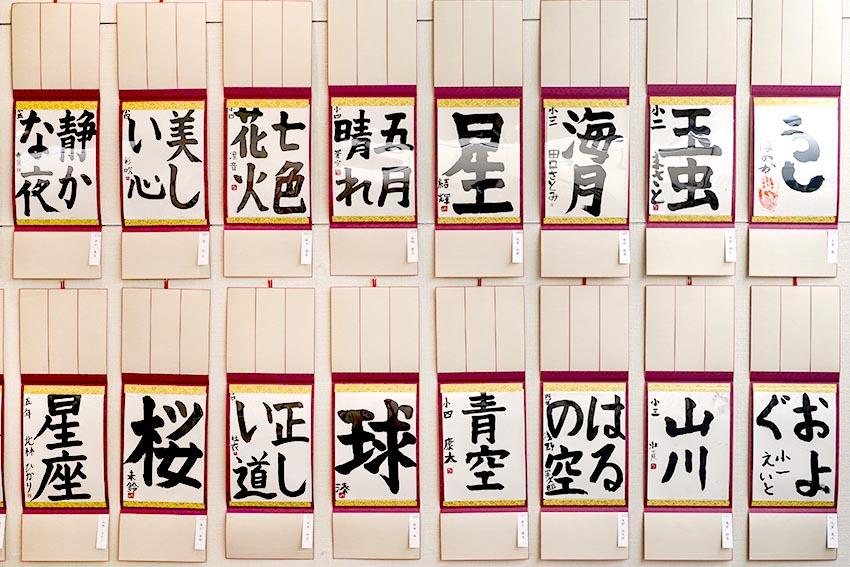 静か
な夜
美し
い心
七色
花火
小四
凛音
五月
晴れ
小四
星
結輝
海月
小三
田口さとみ
玉虫
小二
まさと
うし
ほのか
星座
五年 北林 ひかり
桜
未鈴
正し
い道
球
湊
青空
小四 康太
はる
の空
山川
小三
およ
ぐ
小一
えいと